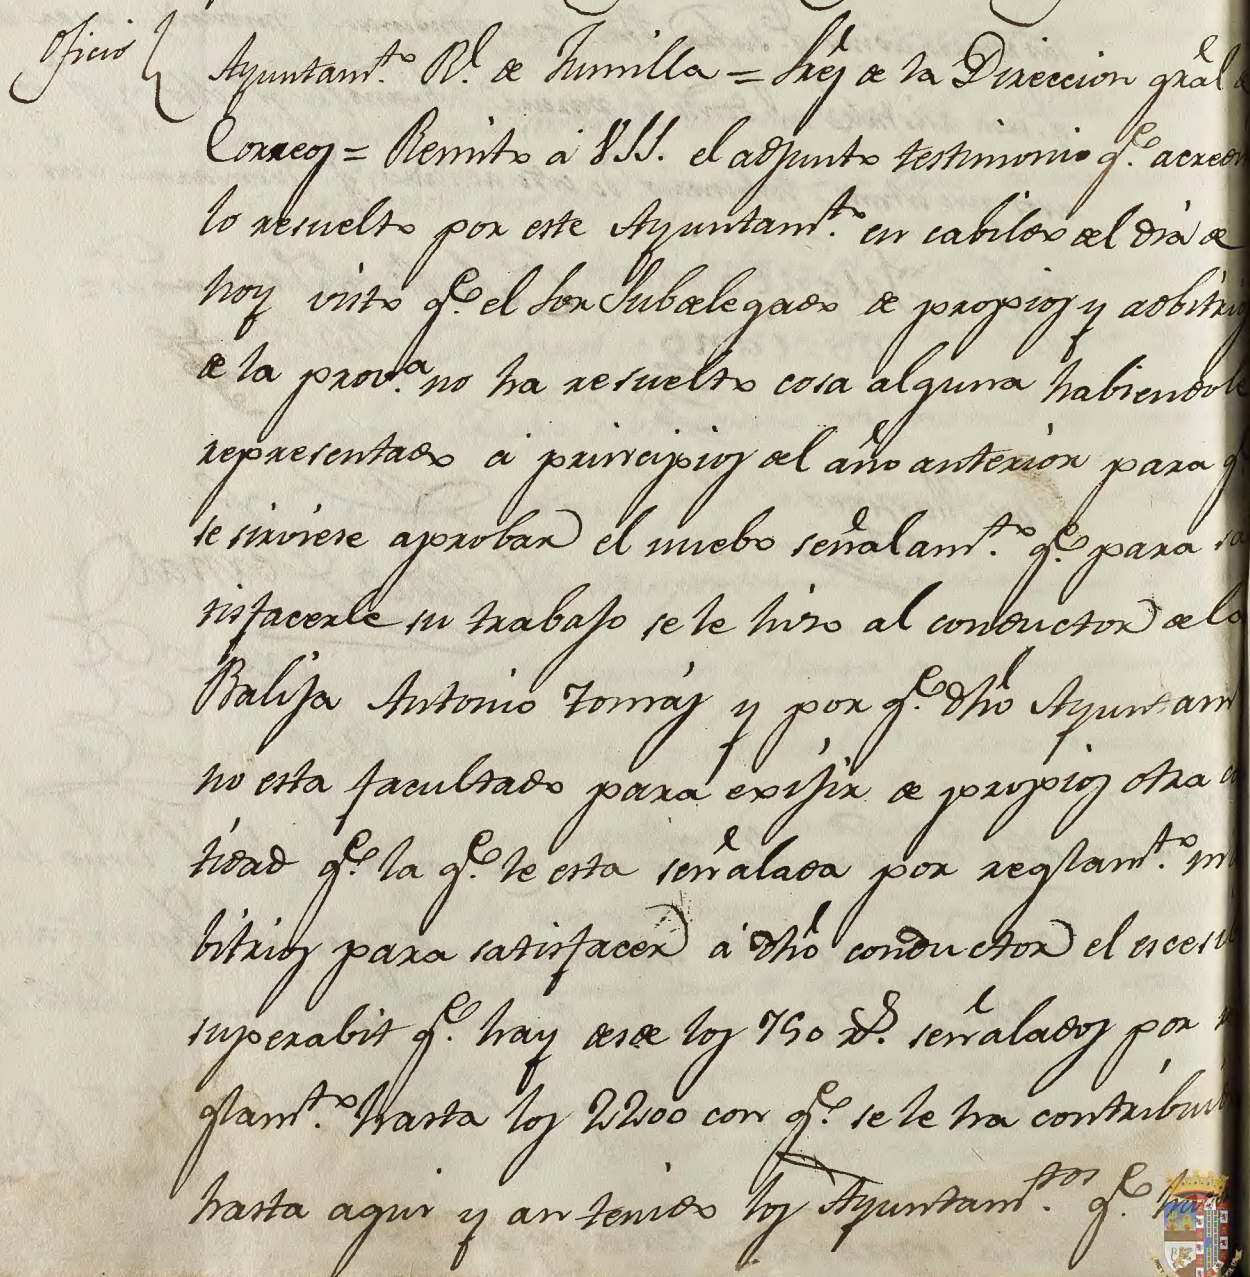 Oficio
Ayuntam.to Rl. de Jumilla = Sres de la Direccion gral de
Correos = Remito á VSS. el adjunto testimonio q.e acredi
lo resuelto por este Ayuntam.to en cabildo del dia de
hoy visto q.e el Sor Subdelegado de propios y adbitrios
de la prov.a no ha resuelto cosa alguna habiendole
representado á principios del año anterior para q.e
se sirviese aprobar el nuebo señalam.to q.e para sa
tisfacerle su trabajo se le hizo al conductor de la
Balija Antonio Tomás y por q.e dho Ayuntam
no esta facultado para exijir de propios otra
tidad q.e la q.e le esta señalada por reglam.to ni
bitrios para satisfacer á dho conductor el escesi
superabit q.e hay desde los 750 rs. señalados por
glam.to hasta los 2200 con q.e se le ha contribui
hasta aqui y an tenido los Ayuntam.tos q.e